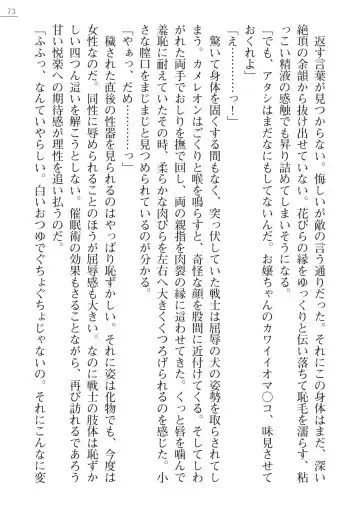 73
返す言葉が見つからない。悔しいが敵の言う通りだった。それにこの身体はまだ、深い
絶頂の余韻から抜け出せていない。花びらの縁をゆっくりと伝い落ちて恥毛を濡らす、粘
っこい精液の感触でも昇り詰めてしまいそうになる。
「でも、アタシはまだなにもしてないんだ。お嬢ちゃんのカワイイオマ〇コ、味見させて
おくれよ」
「え………っ!」
驚いて身体を固くする間もなく、突っ伏していた戦士は屈辱の犬の姿勢を取らされてし
まう。カメレオンはごくりと喉を鳴らすと、奇怪な顔を股間に近付けてくる。そしてしわ
がれた両手でおしりを撫で回し、両の親指を肉裂の縁に這わせてきた。くっと唇を噛んで
羞恥に耐えていたその時、柔らかな肉びらを左右へ大きくくつろげられるのを感じた。小
さな膣口をまじまじと見つめられているのが分かる。
「やぁっ、だめ………っ」
穢された直後の性器を見られるのはやっぱり恥ずかしい。それに姿は化物でも、今度は
女性なのだ。同性に辱められることのほうが屈辱感も大きい。なのに戦士の肢体は恥ずか
しい四つん這いを解こうとしない。催眠術の効果もさることながら、再び訪れるであろう
甘い悦楽への期待感が理性を追い払うのだ。
「ふふっ、なんていやらしい。白いおつゆでぐちょぐちょじゃないの。それにこんなに変